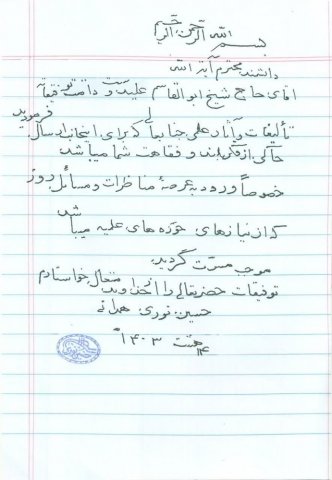 بسم الله الرحمن الرحیم
دانشمند محترم آیة الله
آقای حاج شیخ ابوالقاسم علیدوست دامت توفیقاته
تألیفات و آثار علمی جنابعالی که برای اینجانب ارسال فرمودید
حاکی از فکر بلند و فقاهت شما میباشد
خصوصاً ورود به عرصهٔ مناظرات و مسائل روز
که از نیازهای حوزه های علمیه میباشد
موجب مسرّت گردید.
توفیقات حضرتعالی را از خداوند متعال خواستارم
حسین نوری همدانی
۱۴۰۳